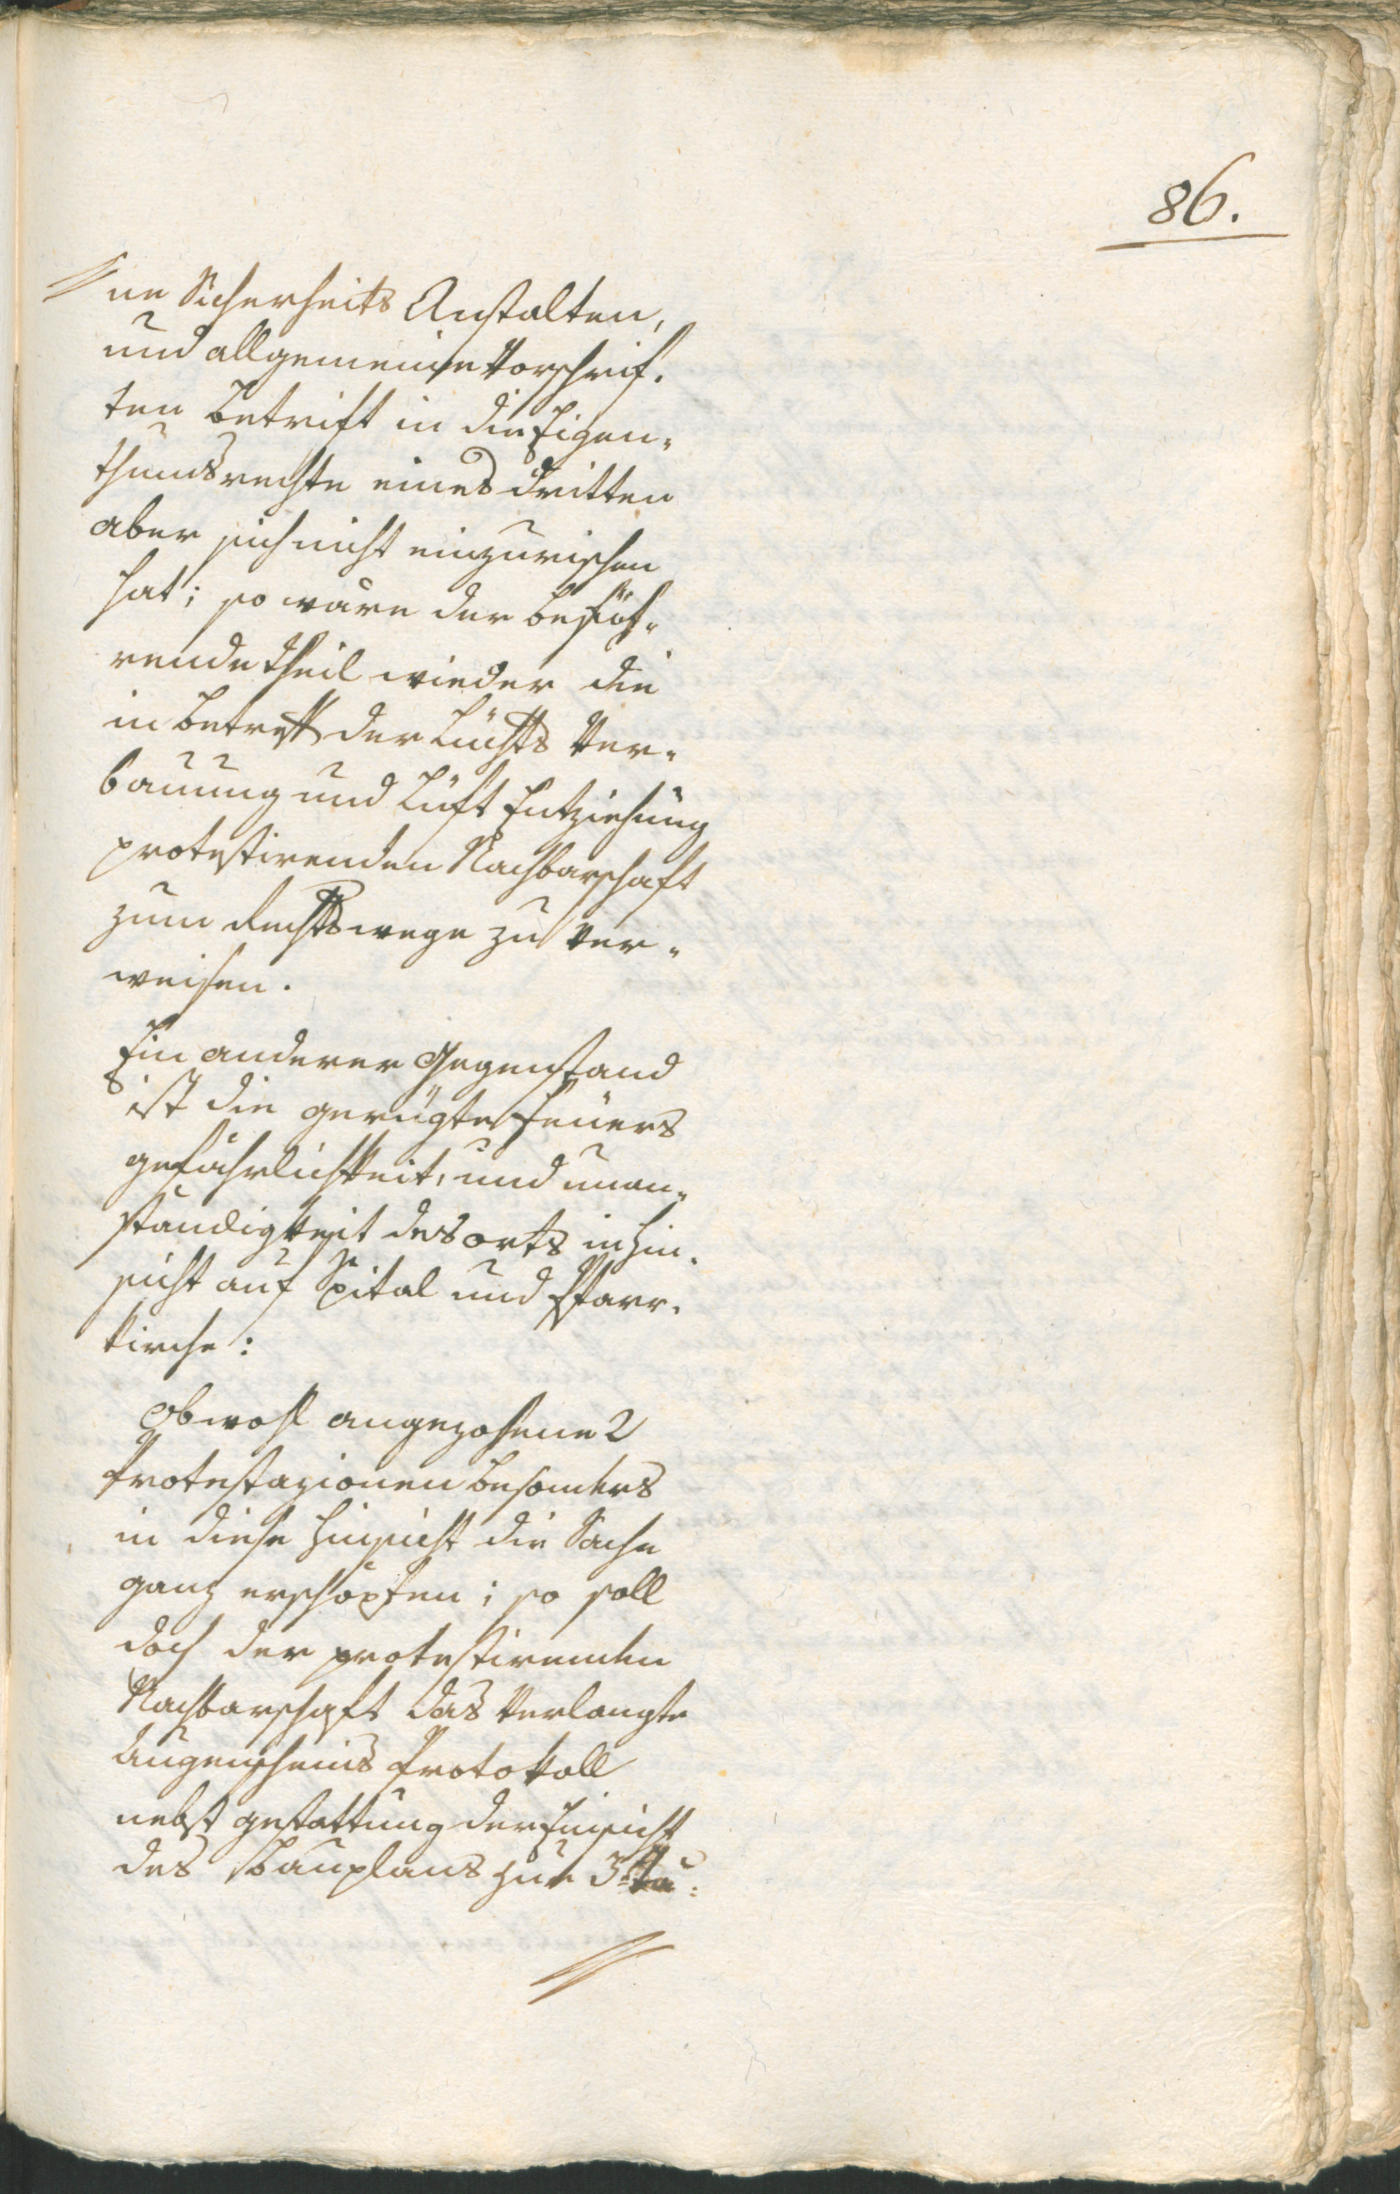 86.
ne Sicherheits Anstalten,
und allgemeine Vorschrif-
ten betrift in die Eigen-
thumsrechte eines dritten
aber sich nicht einzumischen
hat; so wäre der beschwe-
rende theil wieder die
in betreff der Lichts Ver-
bauung und Luft Entziehung
protestirenden Nachbarschaft
zum Rechtswege zu ver-
weisen.
Ein anderer Gegenstand
ist die gerügte Feuers
gefährlichkeit, und unan-
ständigkeit des orts in Hin-
sicht auf Spital und Pfarr-
kirche:
Obwohl angezohene 2
Protestazionen besonders
in diese Hinsicht die Sache
ganz erschöpfen; so soll
doch der protestirenden
Nachbarschaft das Verlangte
Augenscheins Protokoll
nebst gestattung der Einsicht
des Bauplans zur 3